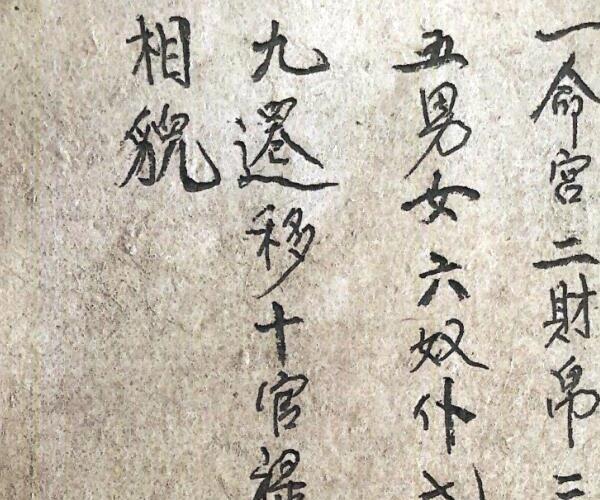 一命宮二財帛三
五男女六奴仆七
九遷移十官祿
相貌